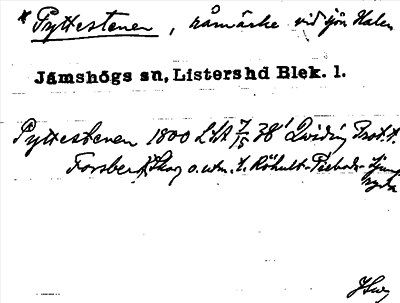 * Pyttestenen, råmärke vid sjön Halen
Jämshögs sn, Listers hd Blek. l.
Pyttestenen 1800 LSA 7/15 38' Qviding Prot. t.
Forsberg Skog o. utm. t. Röhult-Påebode-Ljung
ryda